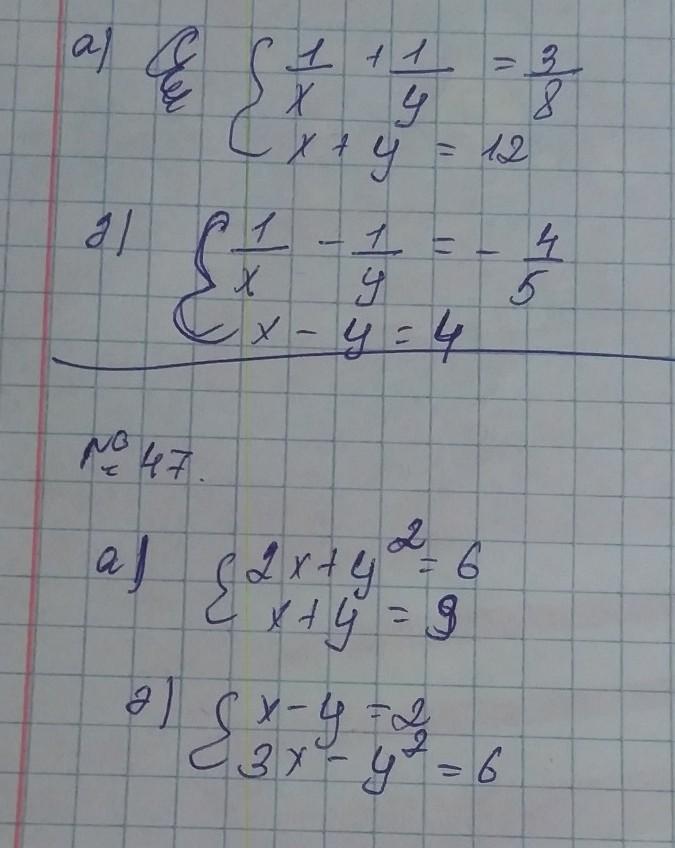 а) { 1/x + 1/y = 3/8
x + y = 12
г) { 1/x - 1/y = - 4/5
x - y = 4
№ 47.
а) { 2x + y² = 6
x + y = 9
г) { x - y = 2
3x - y² = 6